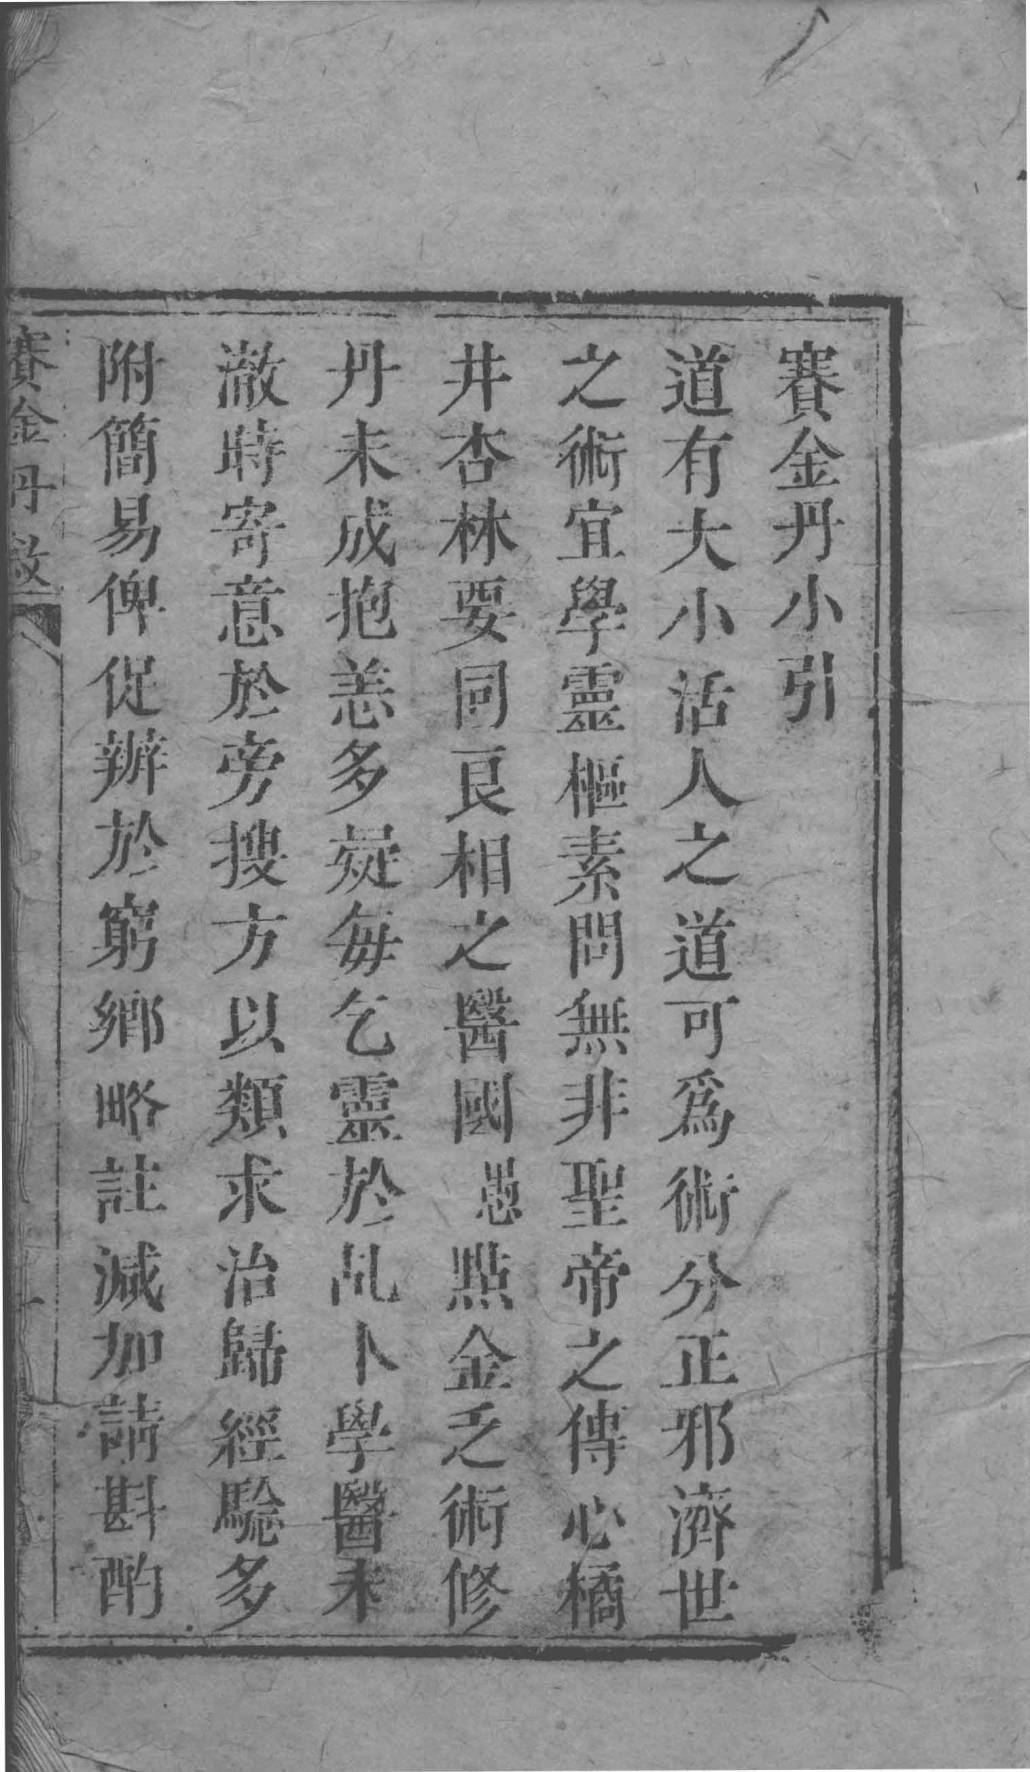 賽金丹小引
道有大小活人之道可爲術分正邪濟世
之術宜學靈樞素問無非聖帝之傳心橘
井杏林要同良相之醫國愚點金乏術修
丹未成抱恙多疑每乞靈於乩卜學醫未
澈時寄意於旁搜方以類求治歸經驗多
附簡易俾促辦於窮鄉略註減加請斟酌
賽金丹敘
一